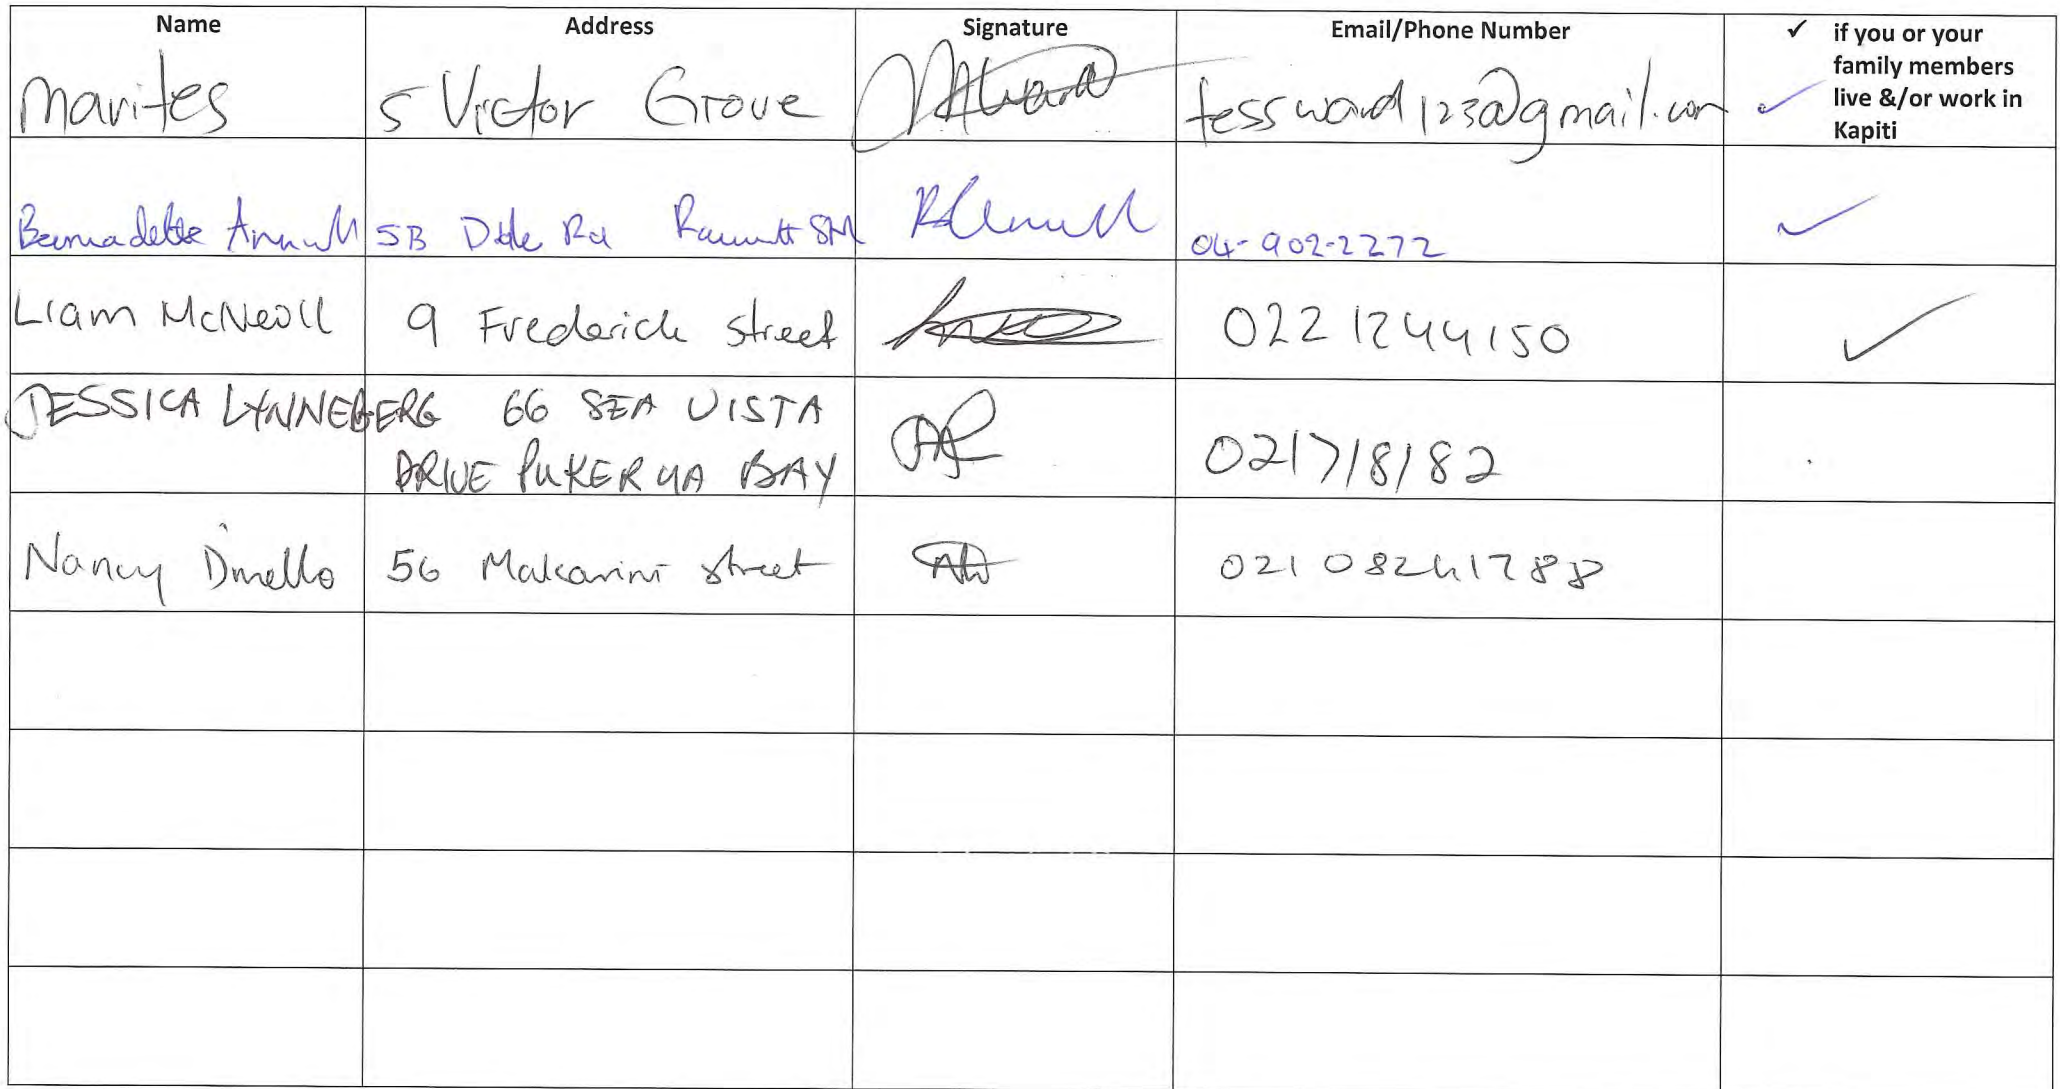 Name Address Signature Email/Phone Number ✓ if you or your
family members
live &/or work in
Kapiti
Marites 5 Victor Grove tessward123@gmail.com ✓
Bernadette 5B Rd 04-902-2272 ✓
Liam McNeoll 9 Frederick street 0221244150 ✓
JESSICA LYNNEBERG 66 SEA VISTA
DRIVE PUKERUA BAY 021718182
Nancy Dmello 56 Makarini street